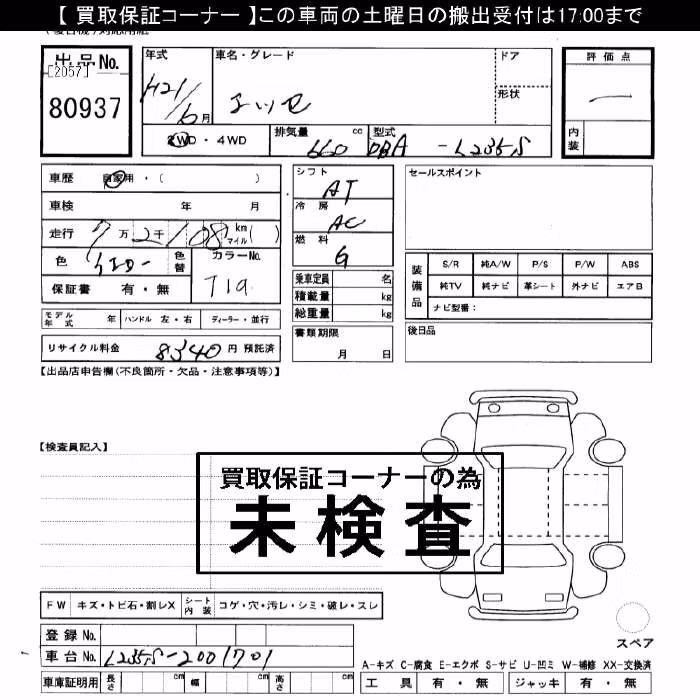 【 買取保証コーナー 】この車両の土曜日の搬出受付は17:00まで
出品No.
[2057]
80937
年式
H21/6月
車名・グレード
エッセ
ドア
形状
評価点
―
内装
2WD・4WD
排気量 660 cc
型式 DBA-L235S
車歴 自家用・( )
車検 年 月
走行 7万2千108 km マイル ( )
色 イエロー 色替
カラーNo. T19
保証書 有・無
シフト AT
冷房 AC
燃料 G
乗車定員 名
積載量 kg
総重量 kg
書類期限
月 日
セールスポイント
装備品
S/R 純A/W P/S P/W ABS
純TV 純ナビ 革シート 外ナビ エアB
ナビ型番：
後日品
モデル年式 年 ハンドル 左・右 ディーラー・並行
リサイクル料金 8340 円 預託済
【出品店申告欄(不良箇所・欠品・注意事項等)】
【検査員記入】
買取保証コーナーの為
未検査
FW キズ・トビ石・割レX シート内装 コゲ・穴・汚レ・シミ・破レ・スレ
登録 No.
車台 No. L235S-2001701
車庫証明用 長さ cm 幅 cm 高さ cm
スペア
A-キズ C-腐食 E-エクボ S-サビ U-凹ミ W-補修 XX-交換済
工具 有・無 ジャッキ 有・無